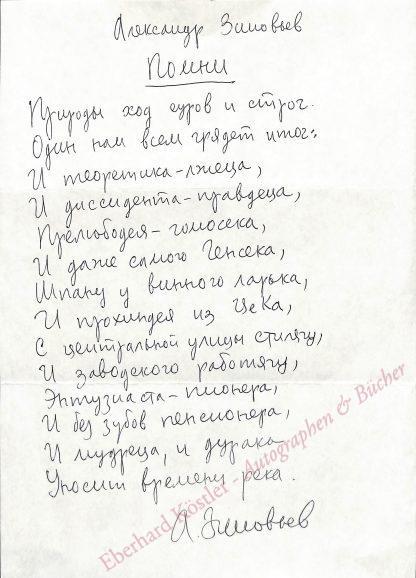 Александр Зиновьев
Помни
Природы ход суров и строг.
Один нам всем грядет итог:
И теоретика-лжеца,
И диссидента-правдеца,
Прелюбодея-гомосека,
И даже самого Генсека,
Шпану у винного ларька,
И прохиндея из ЦеКа,
С центральной улицы стилягу,
И заводского работягу,
Энтузиаста-пионера,
И без зубов пенсионера,
И мудреца, и дурака
Уносит времени река.
А. Зиновьев
Eberhard Köstler - Autographen & Bücher